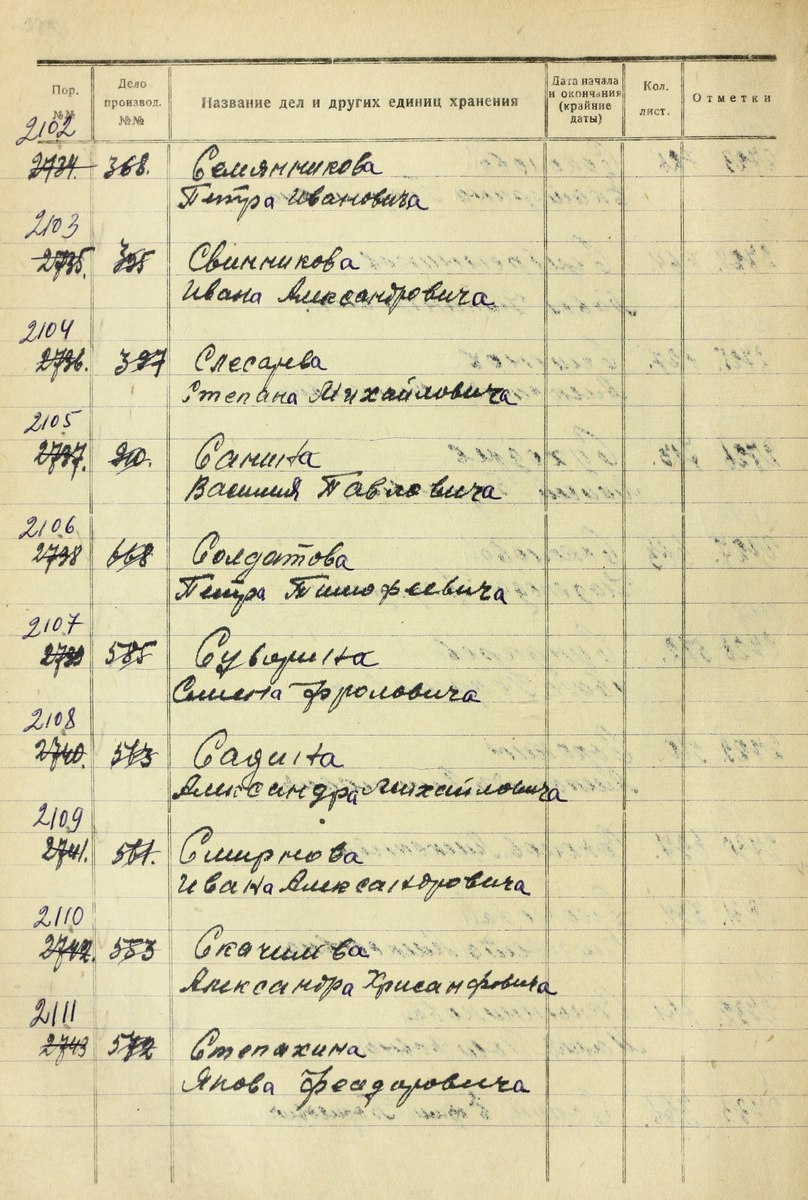 Пор. №№ Дело производ. №№ Название дел и других единиц хранения Дата начала и окончания (крайние даты) Кол. лист. Отметки
2102
2734. 368. Семянникова
Петра Ивановича
2103
2735. Свинникова
Ивана Александровича
2104
2736. 397 Слесарева
Степана Михайловича
2105
2737. Санина
Василия Павловича
2106
2738 668 Солдатова
Петра Тимофеевича
2107
2739 585 Суворина
Семена Фроловича
2108
2740. 563 Садина
Александра Михайловича
2109
2741. 561. Смирнова
Ивана Александровича
2110
2742. 553 Скачкова
Александра Хрисанфовича
2111
2743 572 Степахина
Якова Феодоровича